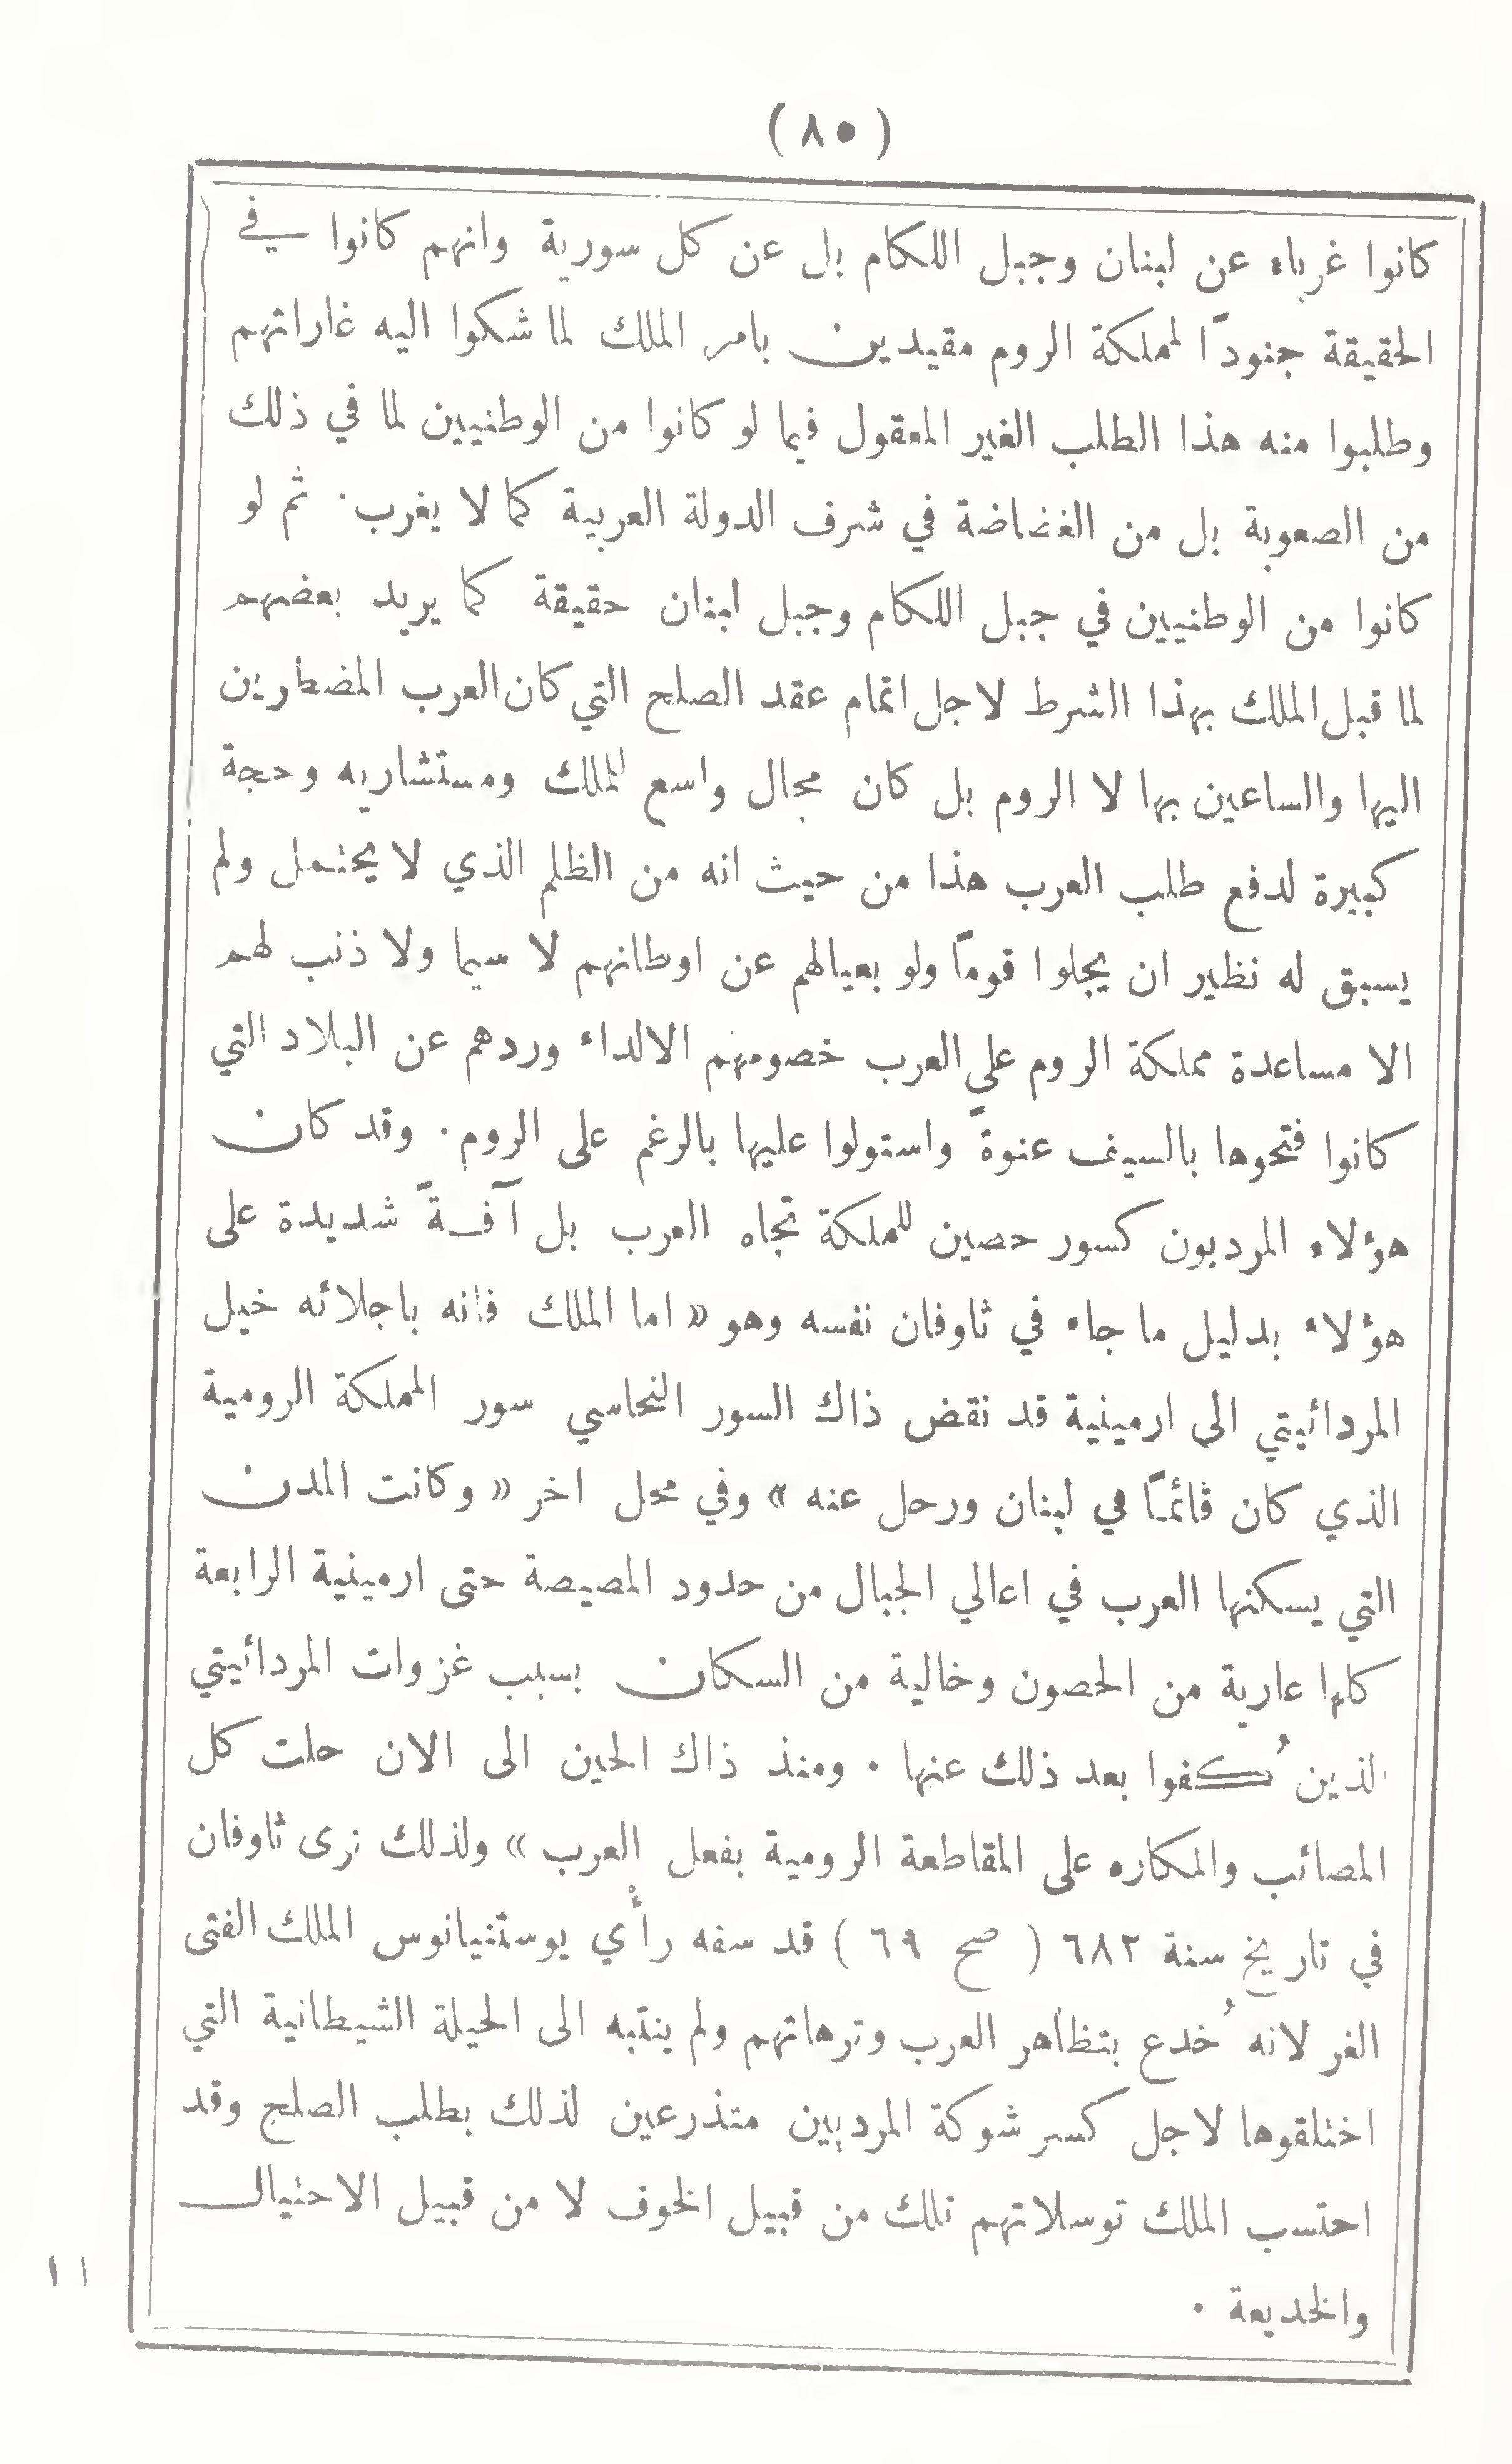 (٨٥)
كانوا غرباء عن لبنان وجبل اللكام بل عن كل سورية وانهم كانوا في
الحقيقة جنودًا لمملكة الروم مقيدين بامر الملك لما شكوا اليه غاراتهم
وطلبوا منه هذا الطلب الغير المعقول فيما لو كانوا من الوطنيين لما في ذلك
من الصعوبة بل من الغضاضة في شرف الدولة العربية كما لا يغرب · ثم لو
كانوا من الوطنيين في جبل اللكام وجبل لبنان حقيقة كما يريد بعضهم
لما قبل الملك بهذا الشرط لاجل اتمام عقد الصلح التي كان العرب المضطرين
اليها والساعين بها لا الروم بل كان مجال واسع للملك ومستشاريه وحجة
كبيرة لدفع طلب العرب هذا من حيث انه من الظلم الذي لا يحتمل ولم
يسبق له نظير ان يجلوا قومًا ولو بعيالهم عن اوطانهم لا سيما ولا ذنب لهم
الا مساعدة مملكة الروم على العرب خصومهم الالداء وردهم عن البلاد التي
كانوا فتحوها بالسيف عنوةً واستولوا عليها بالرغم على الروم · وقد كان
هؤلاء المرديون كسور حصين للمملكة تجاه العرب بل آفةً شديدة على
هؤلاء بدليل ما جاء في ثاوفان نفسه وهو « اما الملك فانه باجلائه خيل
المردائيتي الى ارمينية قد نقض ذاك السور النحاسي سور المملكة الرومية
الذي كان قائمًا في لبنان ورحل عنه » وفي محل اخر « وكانت المدن
التي يسكنها العرب في اعالي الجبال من حدود المصيصة حتى ارمينية الرابعة
كلها عارية من الحصون وخالية من السكان بسبب غزوات المردائيتي
الذين كُفوا بعد ذلك عنها · ومنذ ذاك الحين الى الان حلت كل
المصائب والمكاره على المقاطعة الرومية بفعل العرب » ولذلك نرى ثاوفان
في تاريخ سنة ٦٨٢ ( صح ٦٩ ) قد سفه رأْي يوستنيانوس الملك الفتى
الغر لانه خُدع بتظاهر العرب وترهاتهم ولم ينتبه الى الحيلة الشيطانية التي
اختلقوها لاجل كسر شوكة المرديين متذرعين لذلك بطلب الصلح وقد
احتسب الملك توسلاتهم تلك من قبيل الخوف لا من قبيل الاحتيال
والخديعة ·
١١